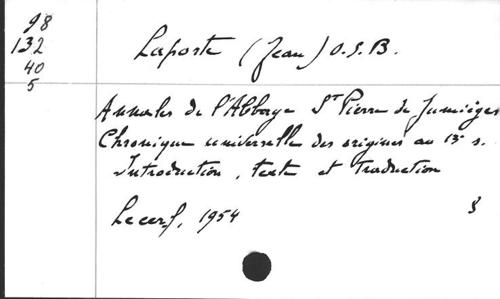 98
132
40
5
Laporte (Jean) O.S.B.
Annales de l'Abbaye St Pierre de Jumièges
Chronique universelle des origines au 13e s.
Introduction, texte et traduction
Lecerf, 1954